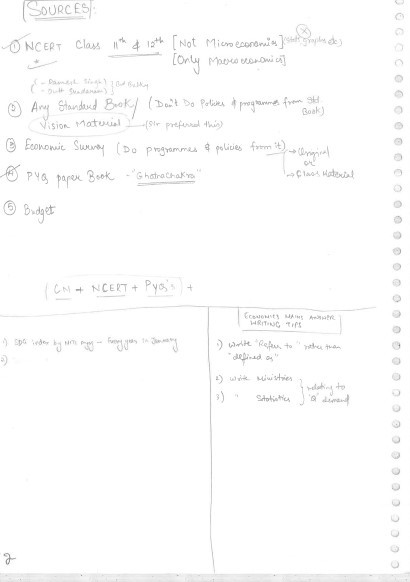 SOURCES:
① NCERT Class 11th & 12th [Not Microeconomics]
[Only Macroeconomics]
- Ramesh Singh
- Dutt Sundaram
② Any Standard Book / (Don't Do Policies & programme from Std Book)
Vision Material → (Sir preferred this)
③ Economic Survey (Do programmes & policies from it) → Original
or
→ Class Material
④ PYQ paper Book - "Ghatnachakra"
⑤ Budget
(CM + NCERT + PYQ's) +
ECONOMICS MAINS ANSWER
WRITING TIPS
1) SDG index by Niti Aayog -
2)
1) Write "Refers to" rather than
"defined as"
2) Write Ministries
3) " Statistics
relating to
'Q' demand
2